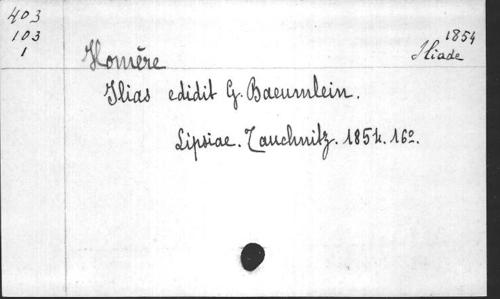 403
103
1
1854
Iliade
Homère
Ilias edidit G. Baeumlein.
Lipsiae. Tauchnitz. 1854. 16º.